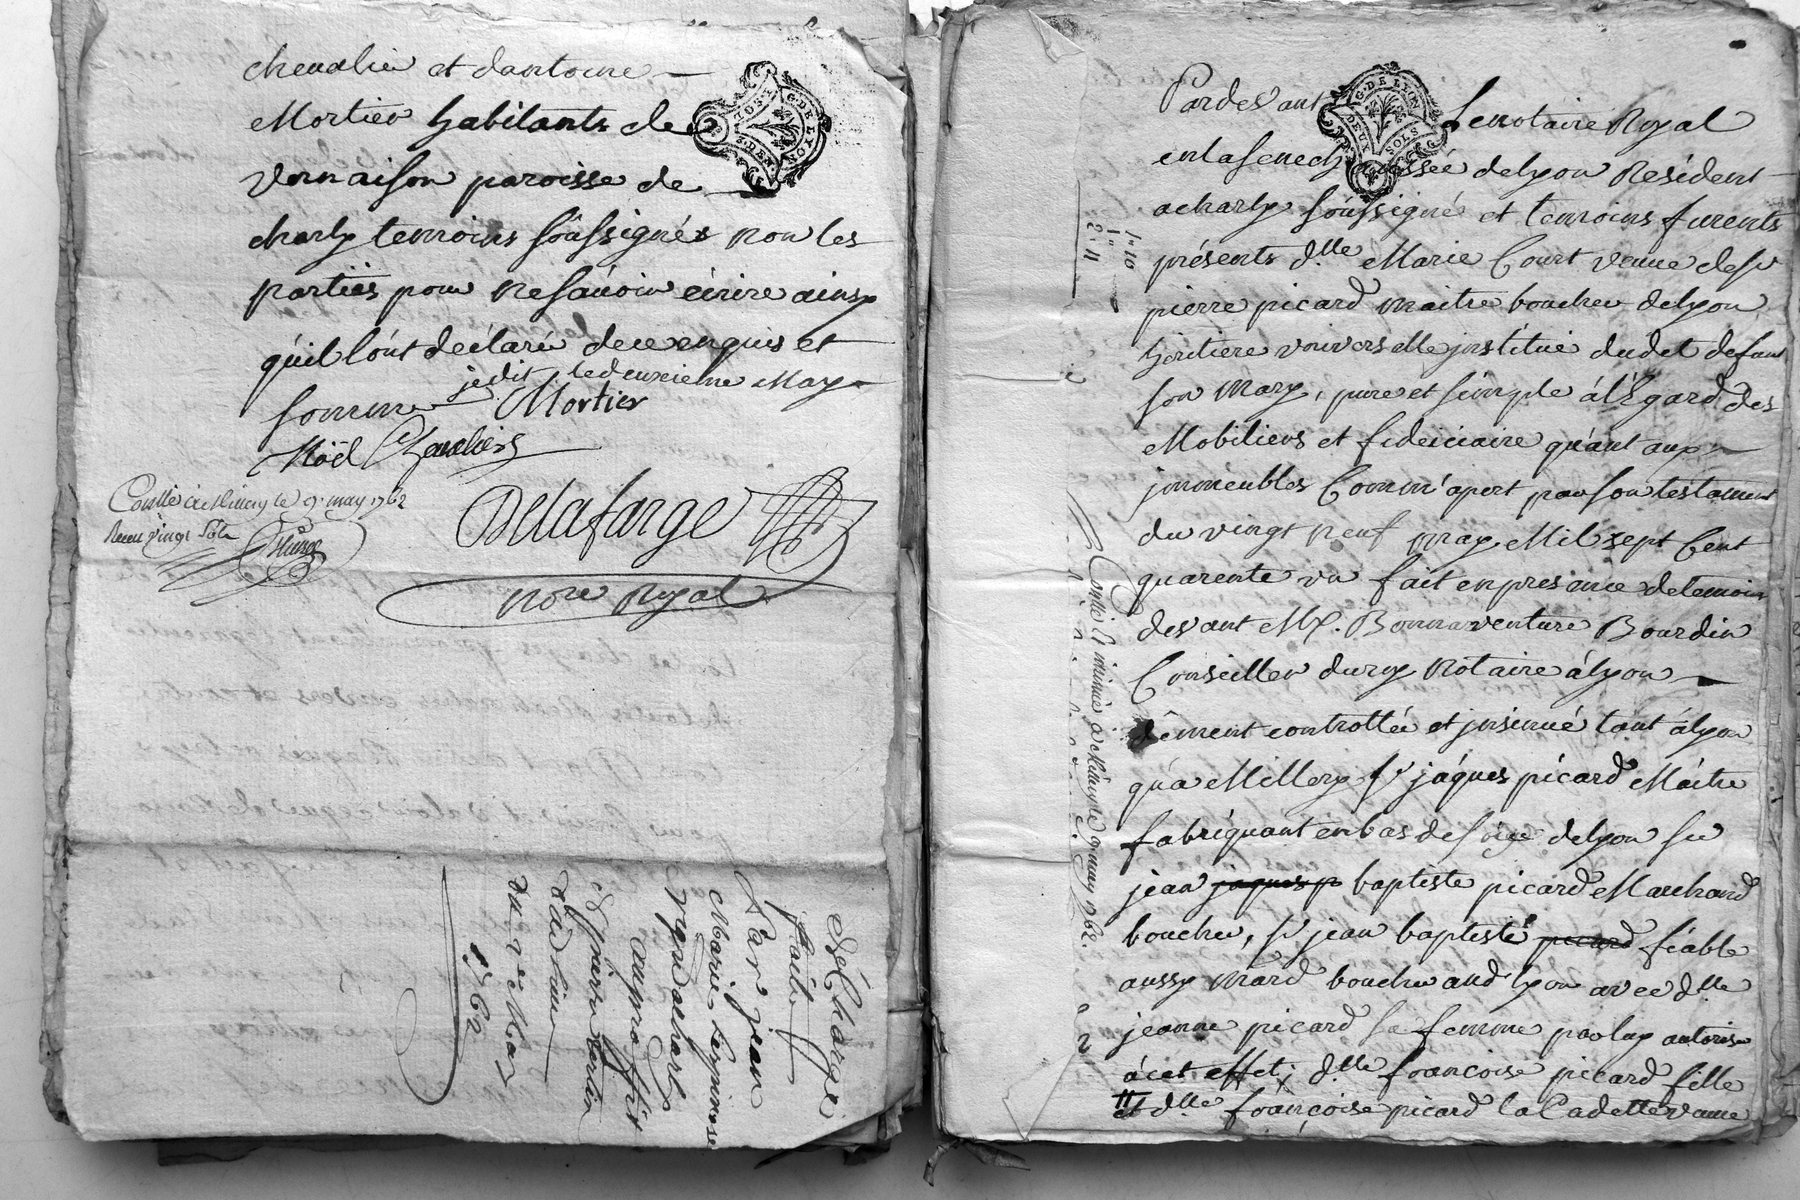 chevalier et dantoine
Mortier habitants de
Vernaison paroisse de
charly temoins soussignés non les
parties pour ne sávoir écrire ainsy
qu'il l'ont déclaré de ce enquis et
sommé
je dit le deuxieme May
Mortier
Noël Chevalier
Conllé à Millery le 9. may 1762
Receu vingt sols
Delafarge
nore Royal
décharge
faite
Par jean
Marie
aux
du 2e May
1762
G. DE LYON
Pardevant Le notaire Royal
en la senechaussée de lyon Résident
a charly soussigné et temoins furents
présents dlle Marie Court veuve de sr
pierre picard maitre boucher de lyon
heritiere vniverselle jnstituée dudt defunt
son mary, pure et simple á l'Egard des
Mobiliers et fideiciaire quant aux
jmmeubles Comm'apert par son testament
du vingt neuf may Mil sept Cent
quarente vn fait en presence de temoins
devant Me. Bonnaventure Bourdin
Conseiller du roy Notaire á lyon
dûment controllée et jnsinué tant á lyon
qu'a Millery sr jáques picard Maitre
fabriquant en bas de soye de lyon sr
jean jaques p baptiste picard Marchand
boucher, sr jean baptiste picard fiable
aussy mard boucher aud lyon avec dlle
jeanne picard sa femme par luy autorisé
á cet effet; dlle francoise picard fille
et dlle françoise picard la Cadette veuve
G. DE LYON
DEUX SOLS
1" 10
1"
2" 11
Conllé & insinué à Millery le 9. may 1762.